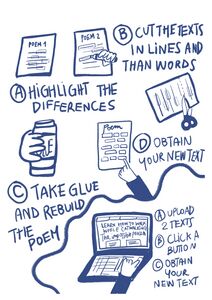 POEM 1
POEM 2
Ⓐ HIGHLIGHT
THE
DIFFERENCES
Ⓑ CUT THE TEXTS
IN LINES AND
THAN WORDS
Ⓒ TAKE GLUE
AND REBUILD
THE
POEM
Poem
Ⓓ OBTAIN
YOUR NEW TEXT
LEARN HOW TO WORK
WHILE
THE
Ⓐ UPLOAD
2 TEXTS
Ⓑ CLICK A
BUTTON
Ⓒ OBTAIN
YOUR NEW
TEXT